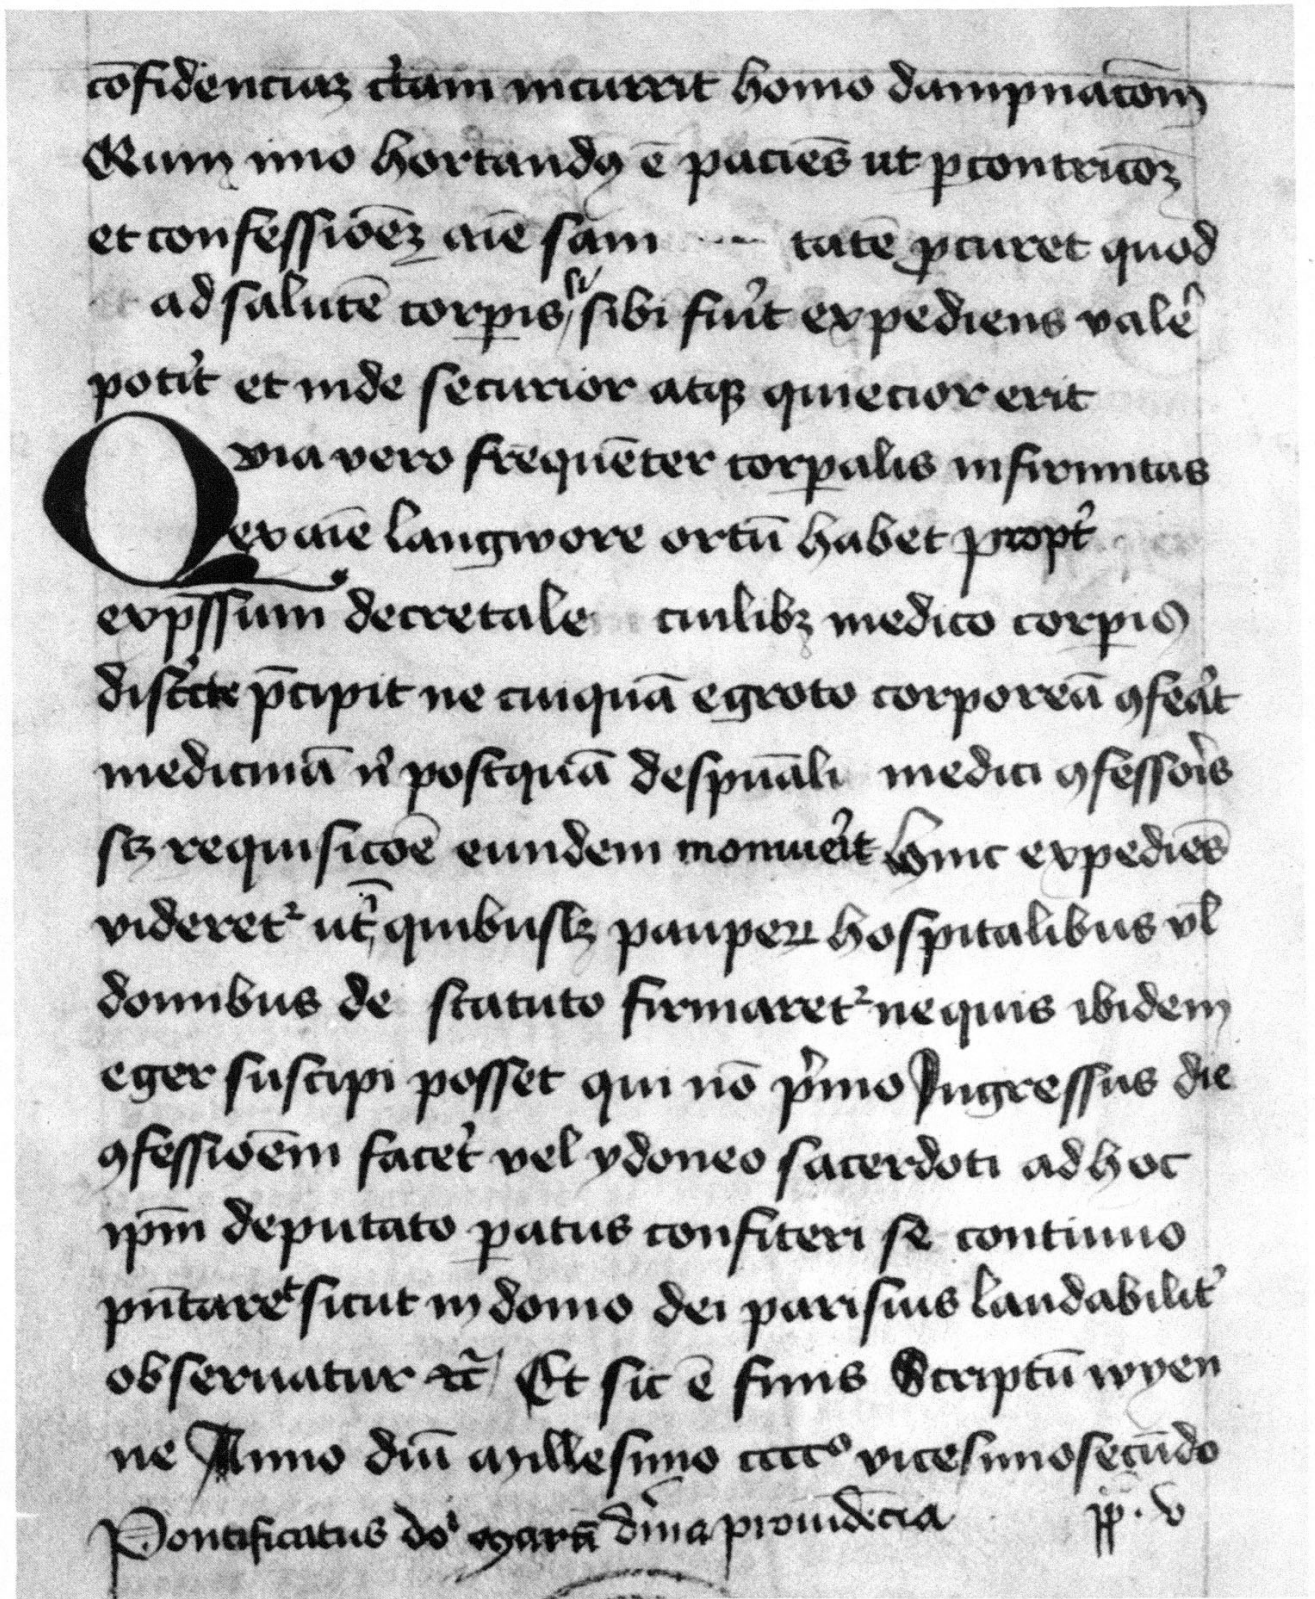 cōfidenciaꝫ et̓nam incurrit homo dampnacōm
Cum imo hortandꝯ ē paciēs ut ꝑ contricōꝫ
et confessiōeꝫ aīe sani tatē ꝓcuret quod
ad salutē corꝑis si sibi fiu̓it expediens vale̓
potit̓ et inde securior atqꝫ quiecior erit
Quia vero frequēter corꝑalis infirmitas
ex aīe langwore ortū habet propt̓
exp̄ssum decretale cuilibꝫ medico corꝑis
discrete p̄cipit ne cuiquā egroto corporeā ꝯferat
medicinā n̓ postquā de spūali medici ꝯfessoris
scꝫ requisicōe eundem monuerit hinc expediēs
videret᷑ ut in quibuslꝫ pauperꝝ hospitalibus vl̄
domibus de statuto firmaret᷑ ne quis ibidem
eger suscipi posset qui nō p̓mo Ingressus die
ꝯfessiōem facet̓ vel ydoneo sacerdoti ad hoc
ip̄m deputato ꝑatus confiteri se continuo
pn̄taret sicut in domo dei parisius laudabilit̓
obseruatur ⁊c̃ Et sic ē finis Scriptū wyen
ne Anno dn̄i Millesimo ccccº vicesimosecūdo
Pontificatus do͛ Martī dīna prouidēcia pp̄ . v